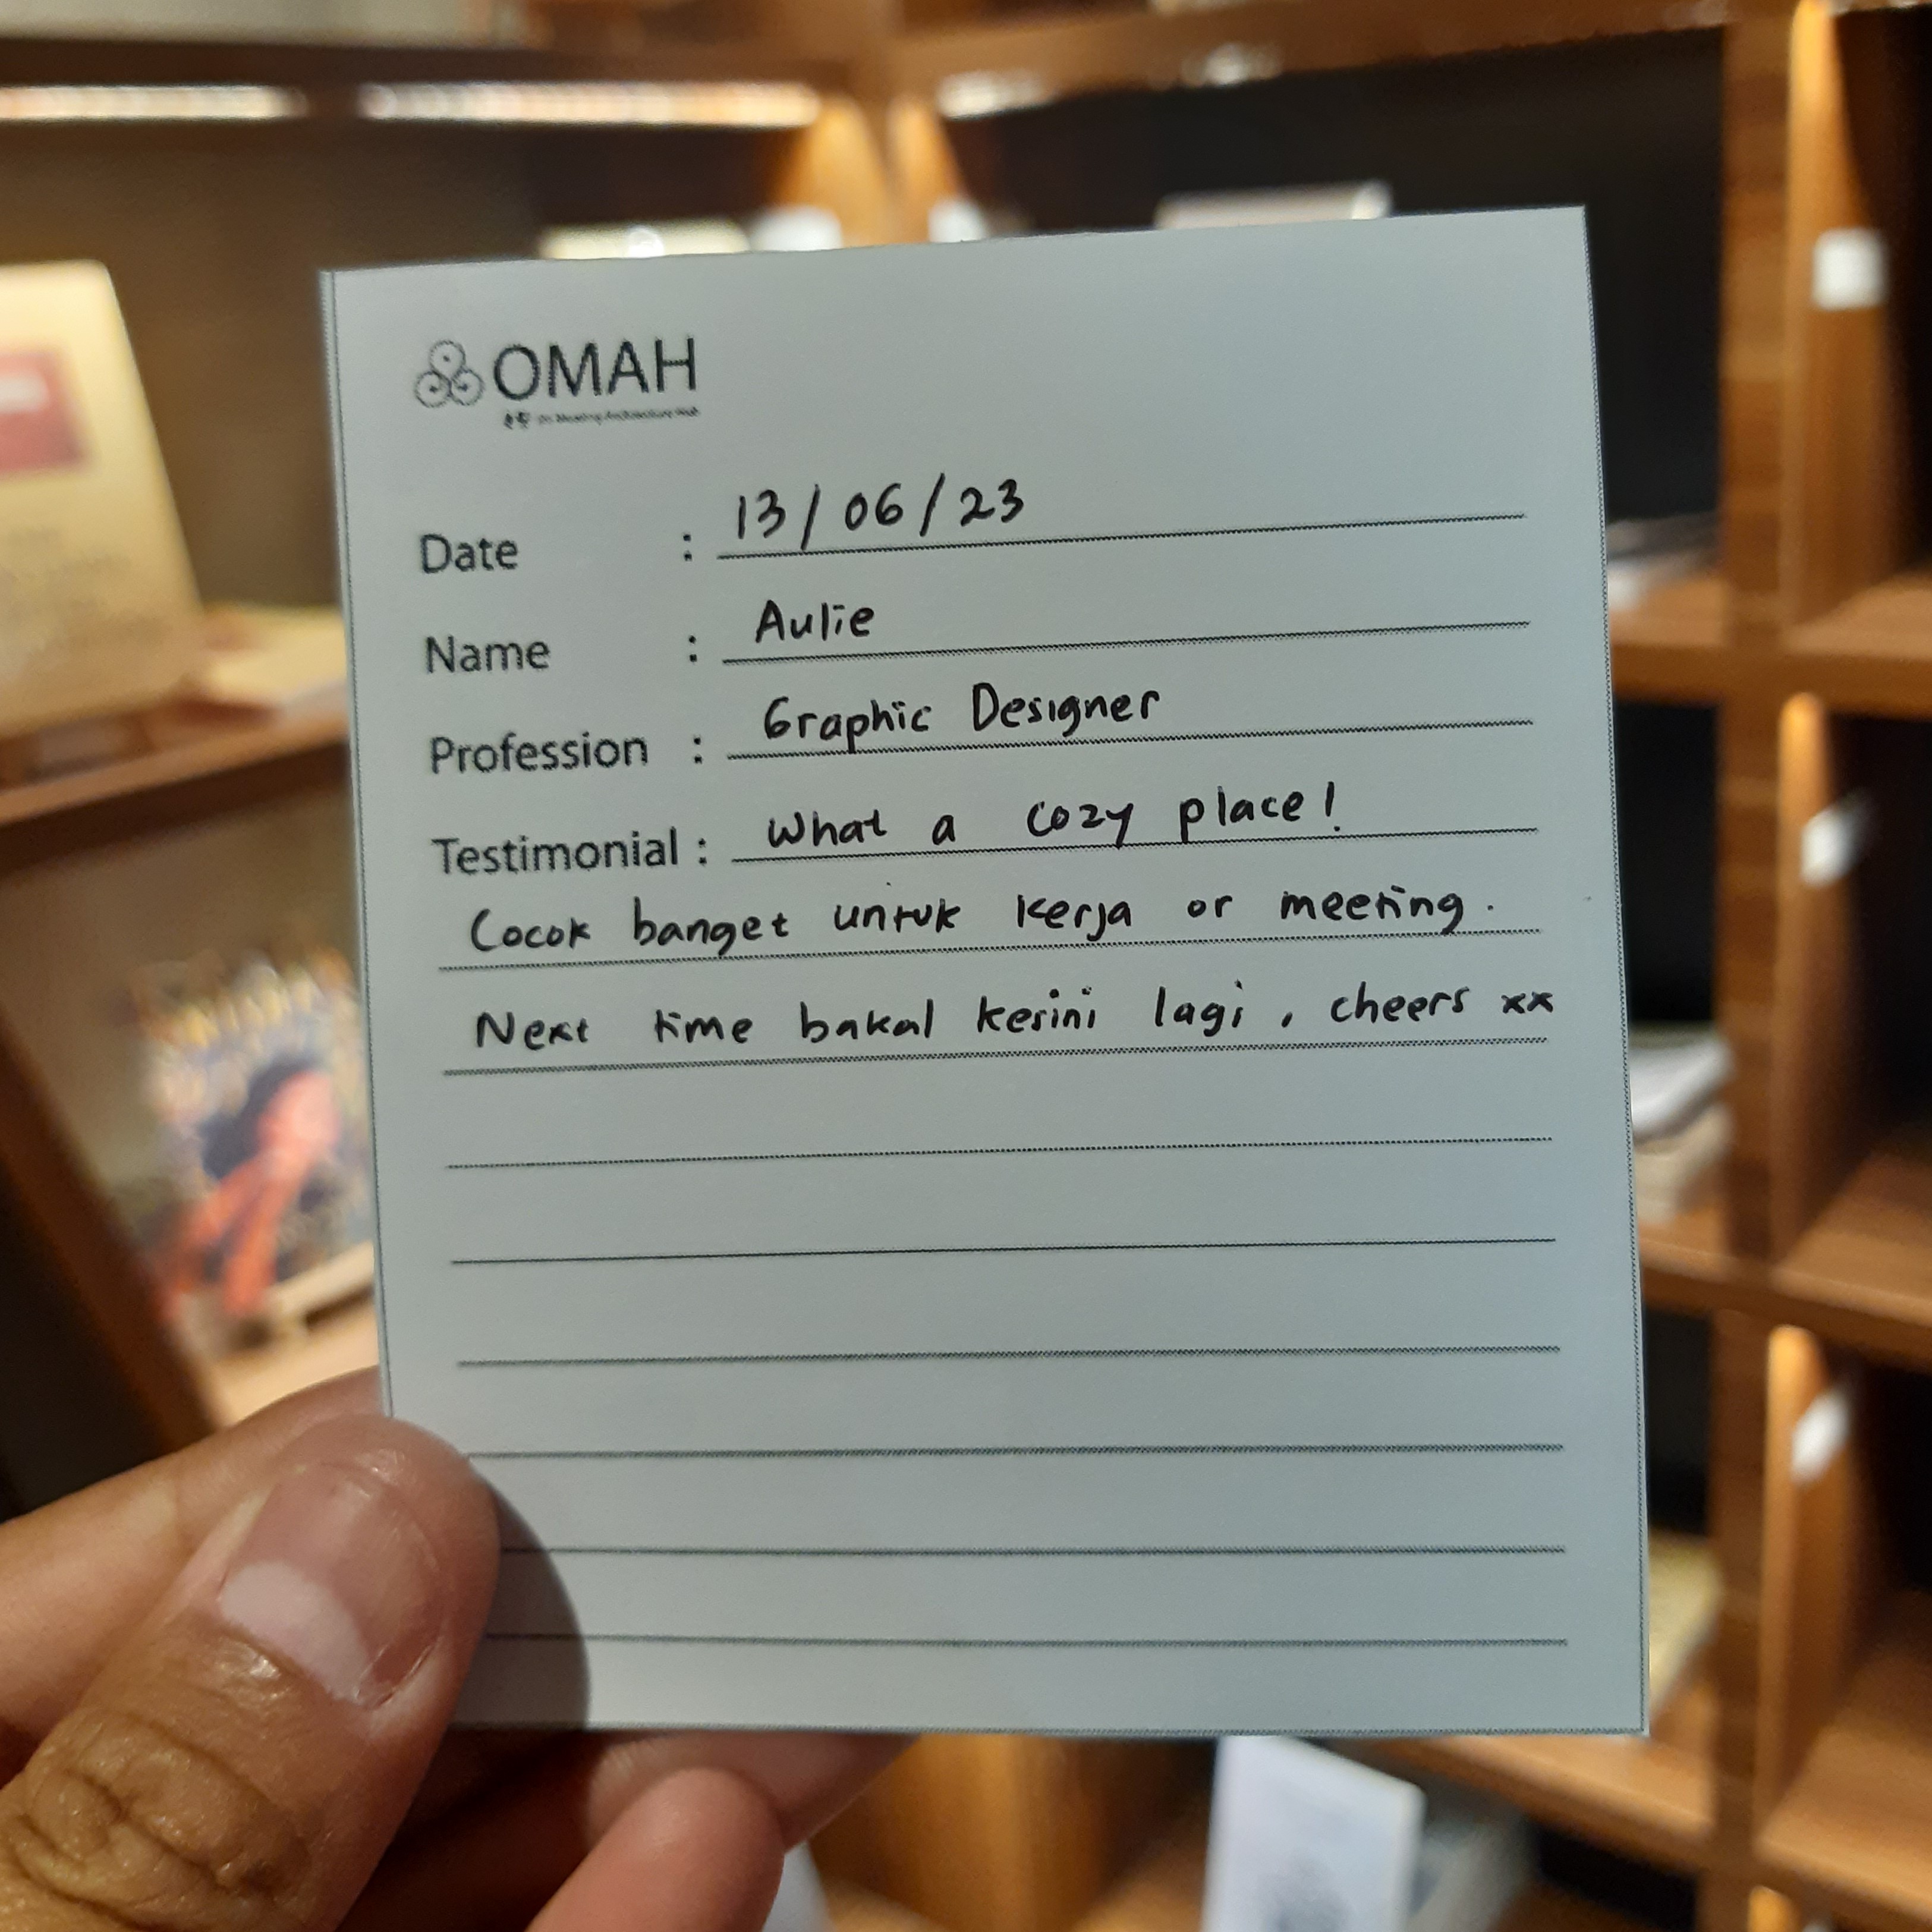 OMAH
Date : 13/06/23
Name : Aulie
Profession : Graphic Designer
Testimonial : What a cozy place!
Cocok banget untuk kerja or meeting.
Next time bakal kesini lagi, cheers xx